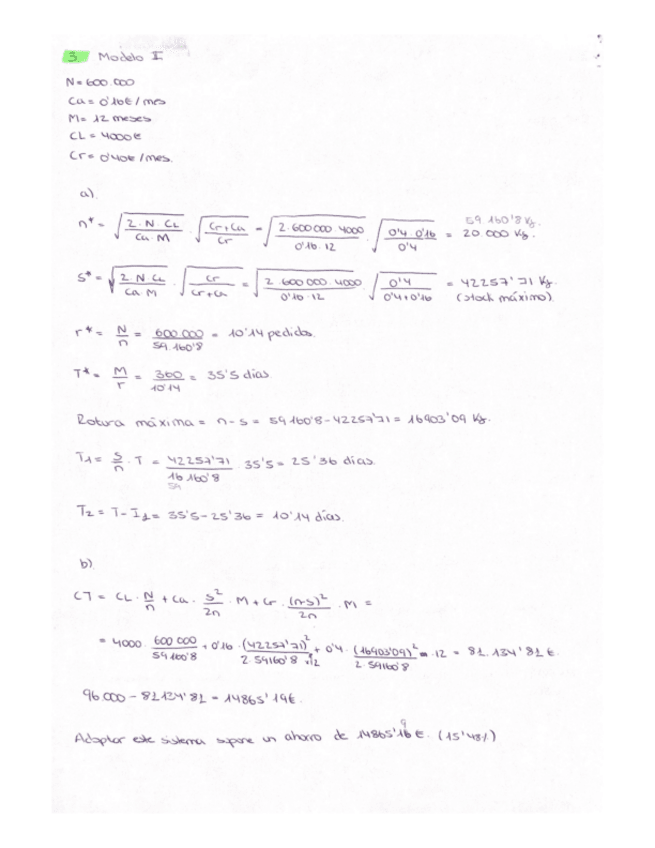 3 Modelo II
N = 600.000
Ca = 0'16€ / mes
M = 12 meses
CL = 4000€
Cr = 0'40€ / mes.
a).
n* = √(2·N·CL / Ca·M) · √(Cr+Ca / Cr) = √(2·600000·4000 / 0'16·12) · √(0'4·0'16 / 0'4) = 20.000 Kg. 59.160'8 Kg.
S* = √(2·N·CL / Ca·M) · √(Cr / Cr+Ca) = √(2·600.000·4000 / 0'16·12) · √(0'4 / 0'4+0'16) = 42257'71 Kg.
(stock máximo)
r* = N/n = 600.000 / 59.160'8 = 10'14 pedidos.
T* = M/r = 360 / 10'14 = 35'5 días
Rotura máxima = n-s = 59160'8 - 42257'71 = 16903'09 Kg.
T1 = S/n · T = 42257'71 / 16160'8 · 35'5 = 25'36 días.
59
T2 = T - T1 = 35'5 - 25'36 = 10'14 días.
b)
CT = CL · N/n + Ca · s²/2n · M + Cr · (n-s)²/2n · M =
= 4000 · 600000 / 59160'8 + 0'16 · (42257'71)² / 2·59160'8 · 12 + 0'4 · (16903'09)² / 2·59160'8 · 12 = 81.134'81€.
96.000 - 81134'81 = 14865'19€.
Adoptar este sistema supone un ahorro de 14865'19€. (15'48%)